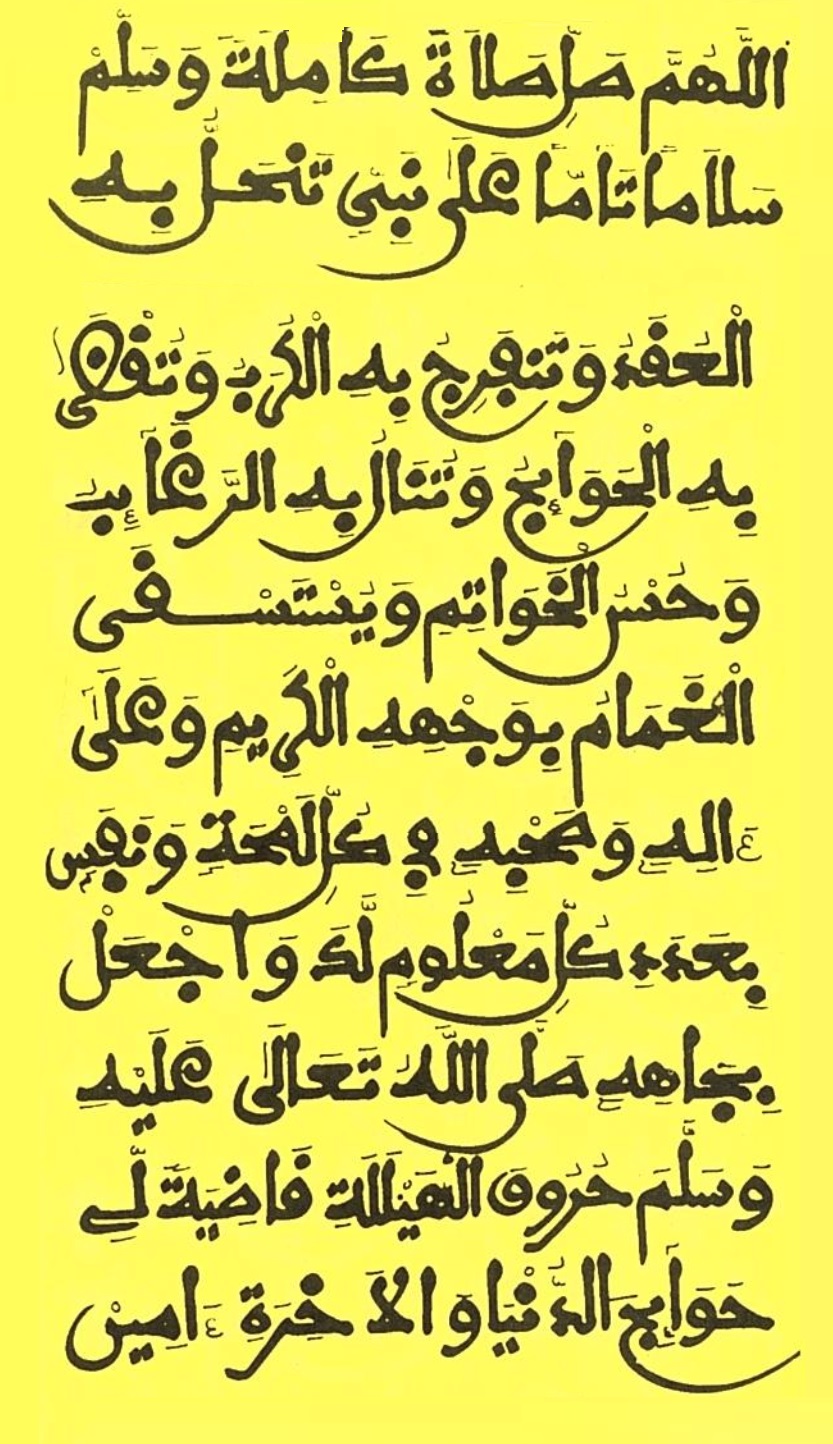 اللَّهُمَّ صَلِّ صَلَاةً كَامِلَةً وَسَلِّمْ
سَلَامًا تَامًّا عَلَى نَبِيٍّ تَنْحَلُّ بِهِ
الْعُقَدُ وَتَنْفَرِجُ بِهِ الْكُرَبُ وَتُقْضَى
بِهِ الْحَوَائِجُ وَتُنَالُ بِهِ الرَّغَائِبُ
وَحُسْنُ الْخَوَاتِمِ وَيُسْتَسْقَى
الْغَمَامُ بِوَجْهِهِ الْكَرِيمِ وَعَلَى
ءَالِهِ وَصَحْبِهِ فِي كُلِّ لَمْحَةٍ وَنَفَسٍ
بِعَدَدِ كُلِّ مَعْلُومٍ لَّكَ وَاجْعَلْ
بِجَاهِهِ صَلَّى اللَّهُ تَعَالَى عَلَيْهِ
وَسَلَّمَ حُرُوفَ الْهَيْلَلَةِ قَاضِيَةً لِّي
حَوَائِجَ الدُّنْيَا وَالَاخِرَةِ ءَامِينْ